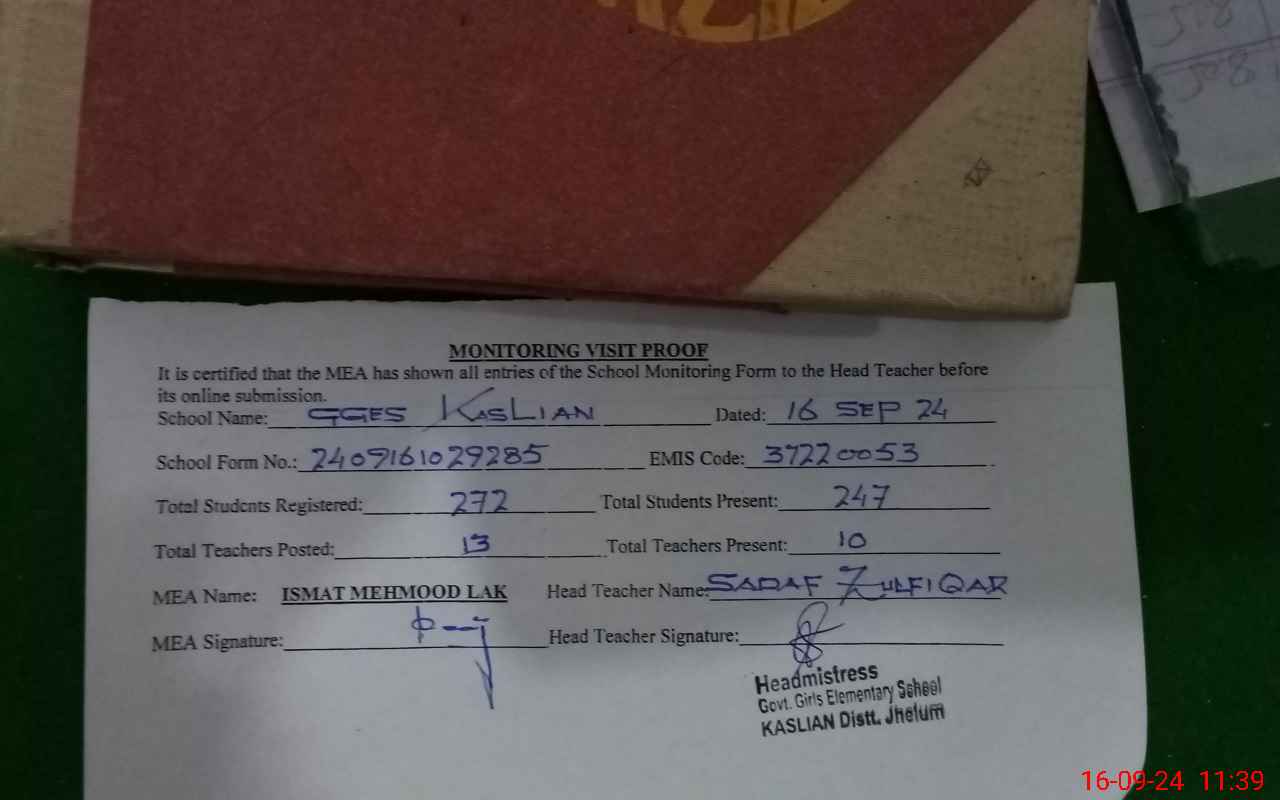 508
508
MONITORING VISIT PROOF
It is certified that the MEA has shown all entries of the School Monitoring Form to the Head Teacher before
its online submission.
School Name: GGES KASLIAN Dated: 16 SEP 24
School Form No.: 2409161029285 EMIS Code: 37220053
Total Students Registered: 272 Total Students Present: 247
Total Teachers Posted: 13 Total Teachers Present: 10
MEA Name: ISMAT MEHMOOD LAK Head Teacher Name: SADAF ZULFIQAR
MEA Signature: Head Teacher Signature:
Headmistress
Govt. Girls Elementary School
KASLIAN Distt. Jhelum
16-09-24 11:39